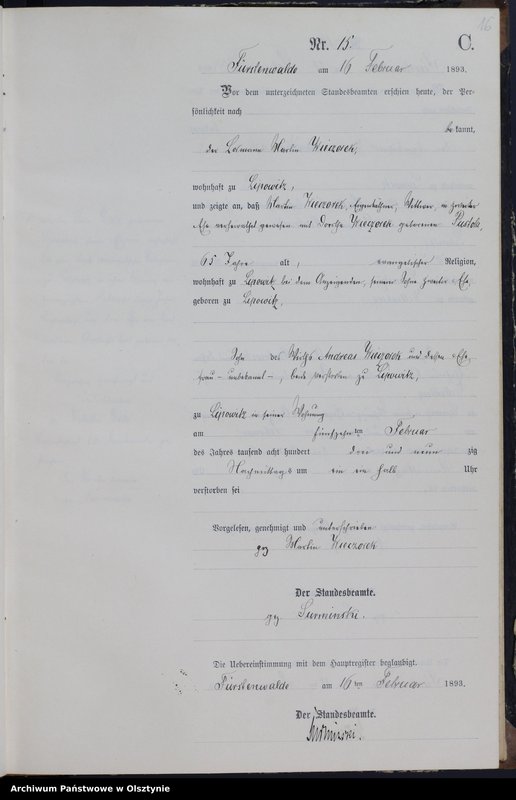 16
Nr. 15
C.
Fürstenwalde am 16 Februar 1893.
Vor dem unterzeichneten Standesbeamten erschien heute, der Per-
sönlichkeit nach
be kannt,
der Losmann Martin Wieczorek,
wohnhaft zu Lipowitz,
und zeigte an, daß Martin Wieczorek, Eigenkäthner, Wittwer, in zweiter
Ehe verheirathet gewesen mit Dorothe Wieczorek geborenen Pustola,
65 Jahre alt, evangelischer Religion,
wohnhaft zu Lipowitz bei dem Anzeigenden, seinem Sohne zweiter Ehe,
geboren zu Lipowitz,
Sohn des Wirths Andreas Wieczorek und dessen Ehe-
frau - unbekannt -, beide verstorben zu Lipowitz,
zu Lipowitz in seiner Wohnung
am fünfzehn ten Februar
des Jahres tausend acht hundert drei und neun zig
Nachmittags um ein ein halb Uhr
verstorben sei
Vorgelesen, genehmigt und unterschrieben
gez Martin Wieczorek
Der Standesbeamte.
gez. Surminski.
Die Uebereinstimmung mit dem Hauptregister beglaubigt.
Fürstenwalde am 16 ten Februar 1893.
Der Standesbeamte.
Surminski.
Archiwum Państwowe w Olsztynie